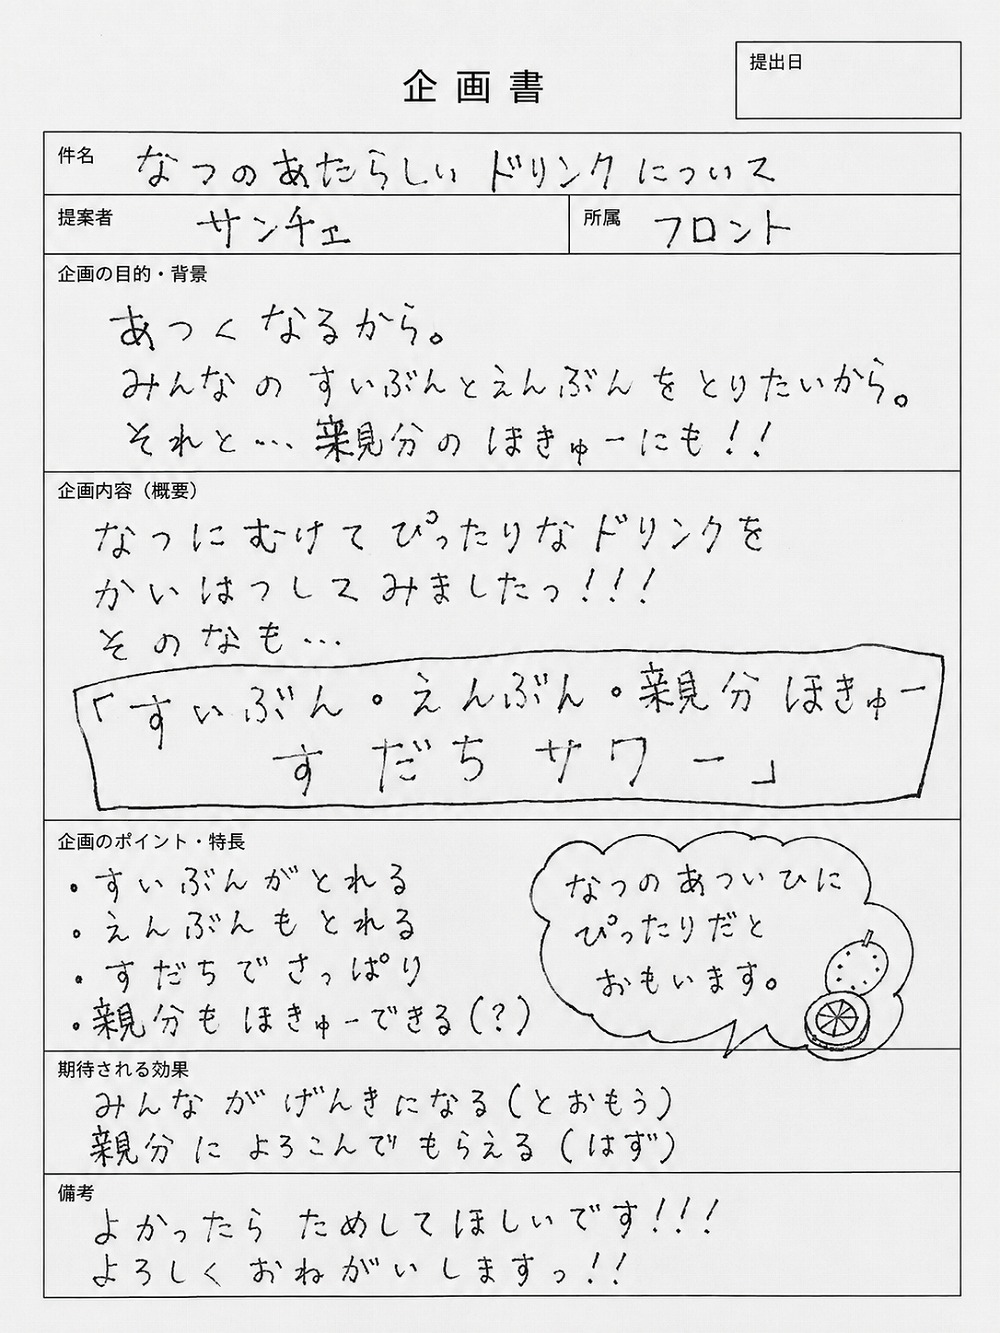 企画書
提出日
件名 なつのあたらしい ドリンクについて
提案者 サンチェ
所属 フロント
企画の目的・背景
あつくなるから。
みんなの すいぶんとえんぶん をとりたいから。
それと… 親分の ほきゅーにも!!
企画内容（概要）
なつにむけて ぴったりな ドリンクを
かいはつしてみましたっ!!!
そのなも…
「すいぶん・えんぶん・親分 ほきゅー
すだち サワー」
企画のポイント・特長
・すいぶんがとれる
・えんぶんもとれる
・すだちでさっぱり
・親分も ほきゅーできる(?)
なつのあついひに
ぴったりだと
おもいます。
期待される効果
みんなが げんきになる(とおもう)
親分に よろこんで もらえる(はず)
備考
よかったら ためしてほしいです!!!
よろしく おねがいしますっ!!